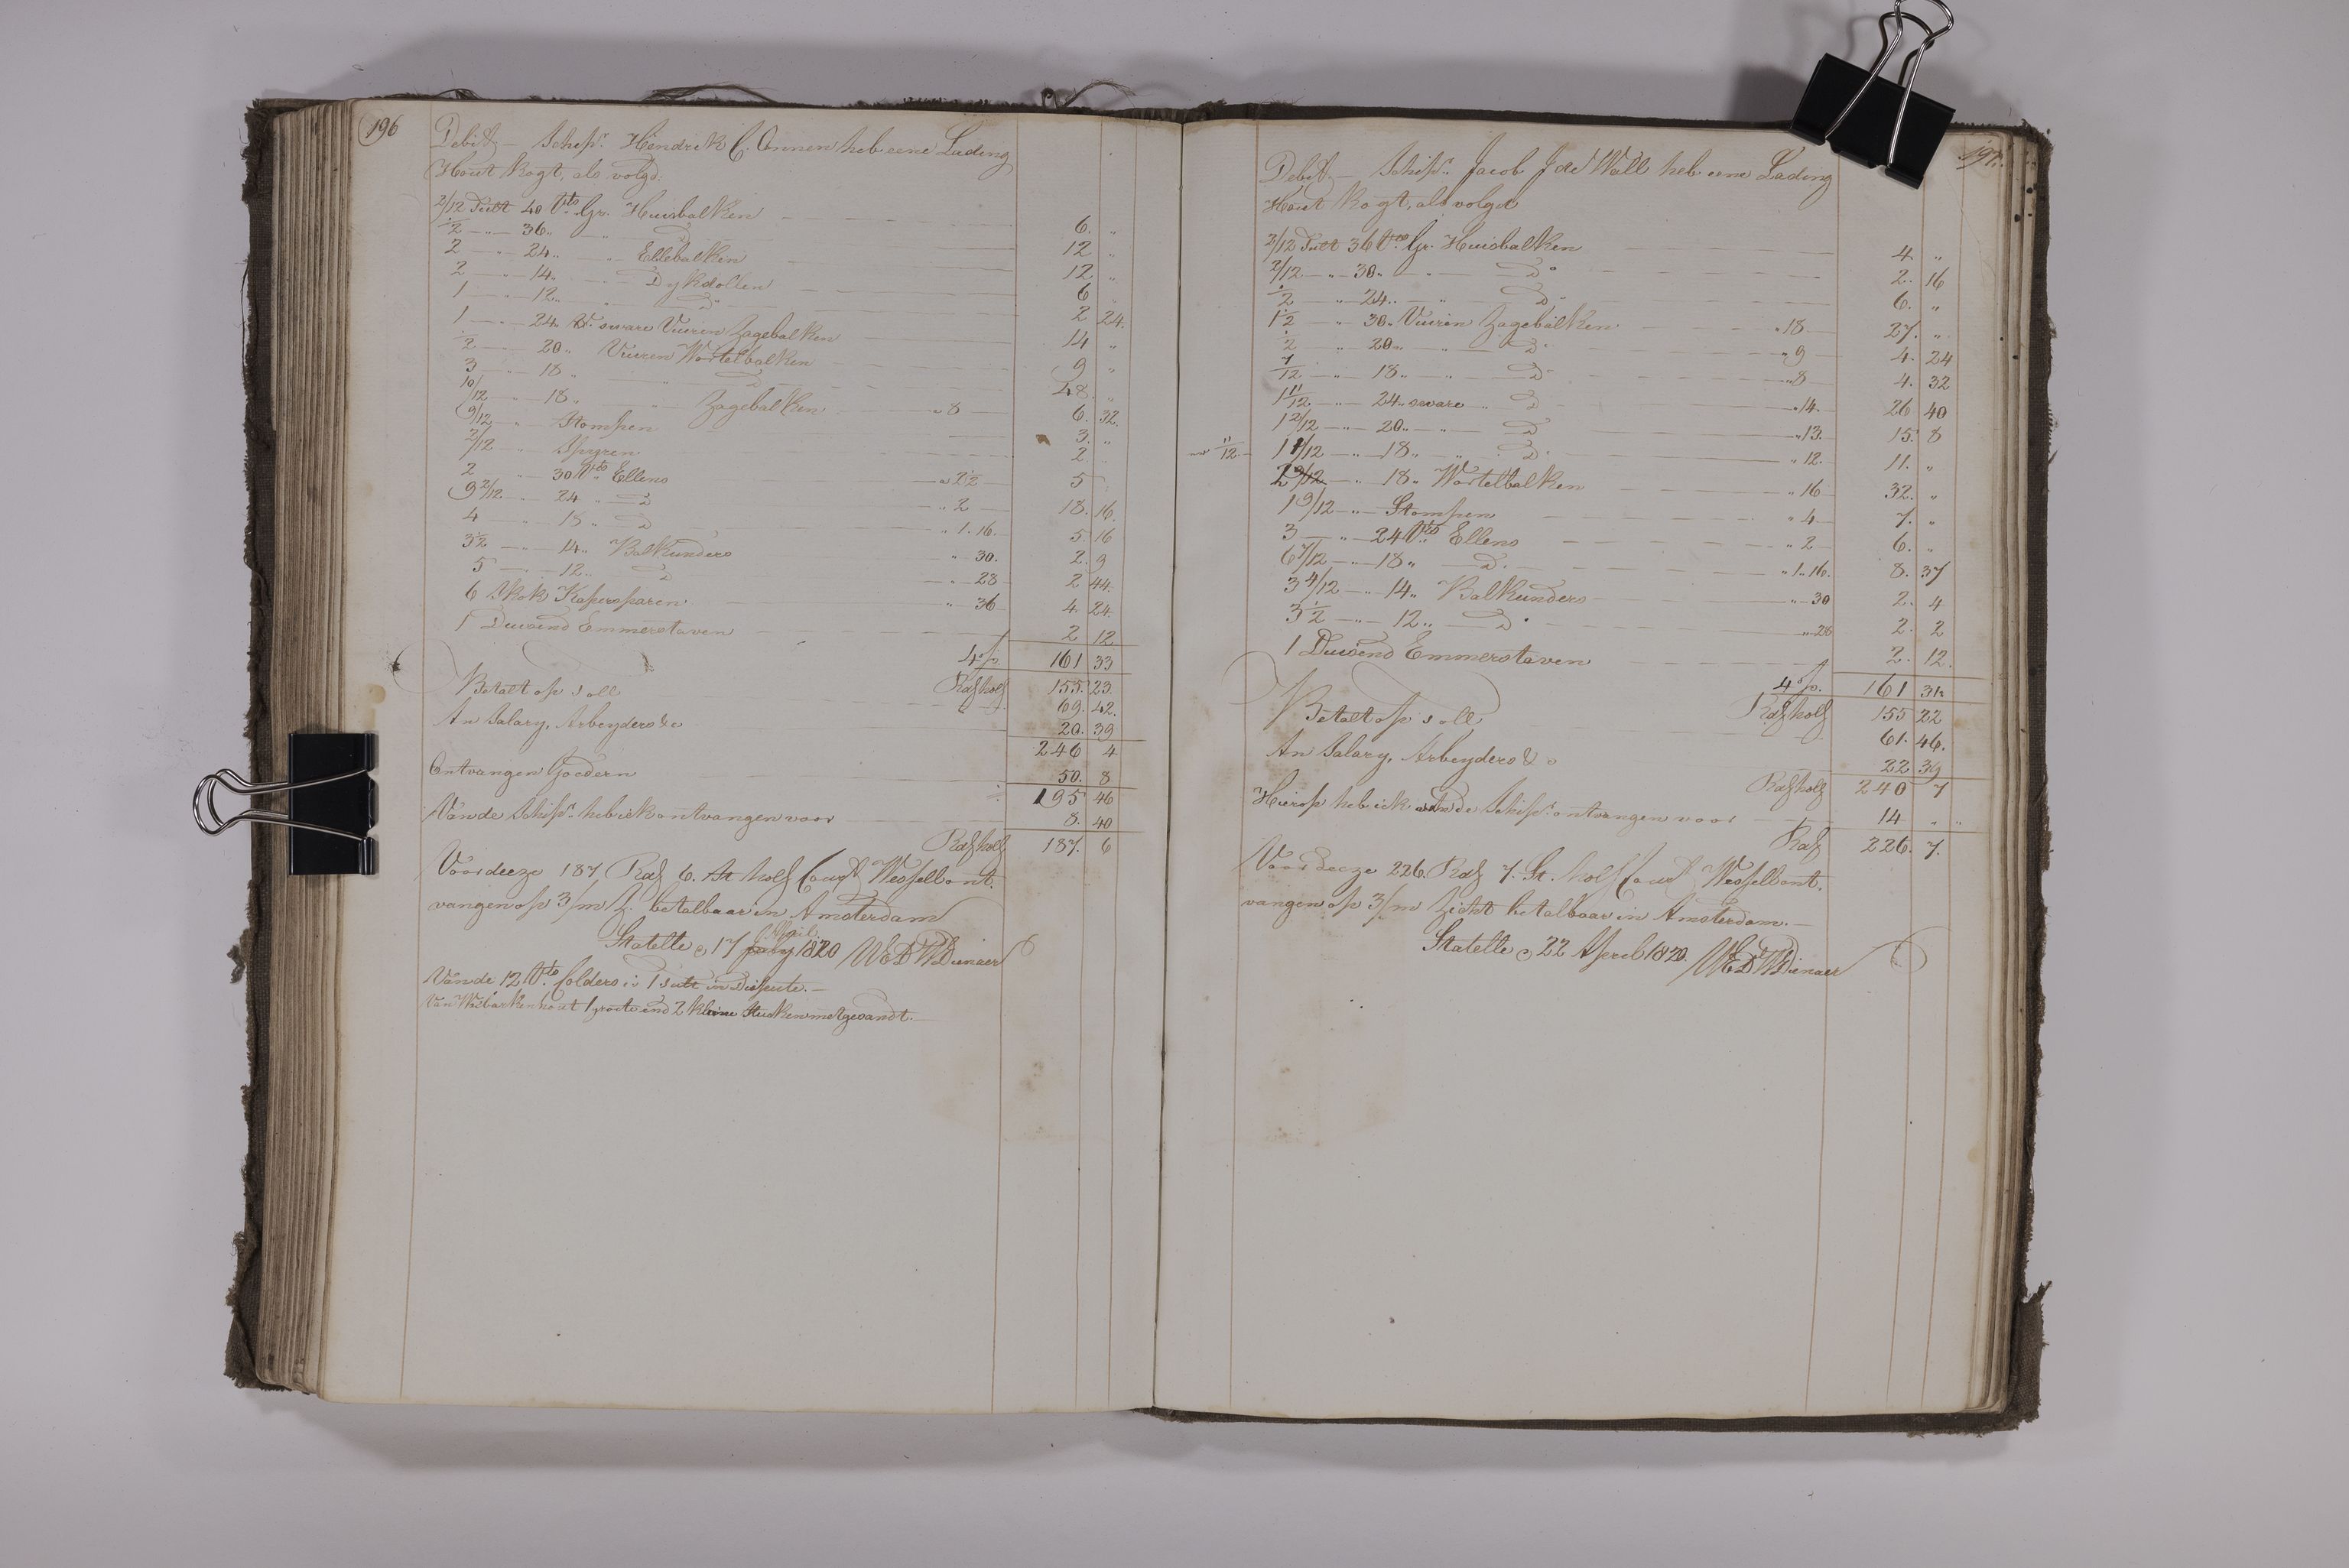 196
Debit — Schipr. Hendrik C. Onnen heb eene Lading
Hout kogt, als volgd:
2/12 Tult 40 Vts. Gr. Huisbalken 6. „
1/2 — „ 36 „ „ Do 12 „
2 — „ 24 „ „ Ellebalken 12 „
2 — „ 14 „ „ Dykdollen 6
1 — „ 12 „ „ Do 2 24.
1 — „ 24 „ Vt. sware Vuiren Zagebalken 14 „
1/2 — „ 20 „ Vuiren Wortelbalken 9 „
3 — „ 18 „ „ Do 48. „
10/12 „ 18 „ „ Zagebalken „ 8 6. 32.
9/12 „ Stompen 3. „
2/12 „ Spyren 2.
2 „ 30 Vts. Ellens a 2 1/2 5
9 2/12 „ 24 „ Do „ 2 18. 16.
4 — „ 18 „ Do „ 1. 16. 5. 16
3 1/2 — „ 14 „ Balkunders „ 30. 2. 9
5 — „ 12 „ Do „ 28 2 44.
6 Skok Kapersparen „ 36 4. 24.
1 Duisend Emmerstaven 2 12
4 p. 161 33
Rdz holz 155. 23.
Betalt op Toll 69. 42.
An Salary, Arbeyders &c 20. 39
246 4
Ontvangen Goedern 50. 8
195 46
Van de Schipr. heb ick ontvangen voor 8. 40
Rdz holz 187. 6
Voor deeze 187 Rdz 6. St holz Court Wessel ont-
vangen op 3/m Z. betalbaar in Amsterdam
April
Statelle d 17 july 1820 WEDWDienaer
Van de 12 Vts. Colders is 1 Tult in Dispute. —
Van Wesbarkenhout 1 groote end 2 kleine Stucken metgesandt. —
197.
Debit. — Schipr. Jacob J de Wall heb eene Lading
Hout kogt, als volgd
2/12 Tult 36 Vts Gr. Huisbalken 4. „
2/12 — „ 30 „ „ Do 2. 16
1/2 — „ 24 „ „ Do 6. „
1 1/2 „ 30 „ Vuiren Zagebalken „ 18 27. „
1/2 „ 20 „ „ Do „ 9 4. 24
7/12 — „ 18 „ „ Do „ 8 4. 32
1 11/12 — „ 24 „ sware „ Do „ 14. 26 40
1 2/12 — „ 20 „ „ Do „ 13. 15. 8
11/12 1 1/12 — „ 18 „ „ Do „ 12. 11. „
2 9/12 — „ 18 „ Wortelbalken „ 16 32. „
1 9/12 — „ Stompen „ 4 7. „
3 — „ 24 Vts Ellens „ 2 6. „
6 7/12 — „ 18 „ Do „ 1. 16. 8. 37
3 4/12 — „ 14 „ Balkunders „ 30 2. 4
3 1/2 — „ 12 „ Do „ 28 2. 2
1 Duisend Emmerstaven 2. 12.
4 p. 161 31
Rdz holz 155 22
Betalt op Toll 61. 46.
An Salary, Arbeyders &c 22 39
Rdz holz 240 7
Hierop heb ick van de Schipr. ontvangen voor 14 „ „
Rdz 226. 7.
Voor deeze 226. Rdz 7. St. holz Court Wessel ont-
vangen op 3/m Zicht betalbaar in Amsterdam. —
Statelle d 22 April 1820. WEDWDienaer